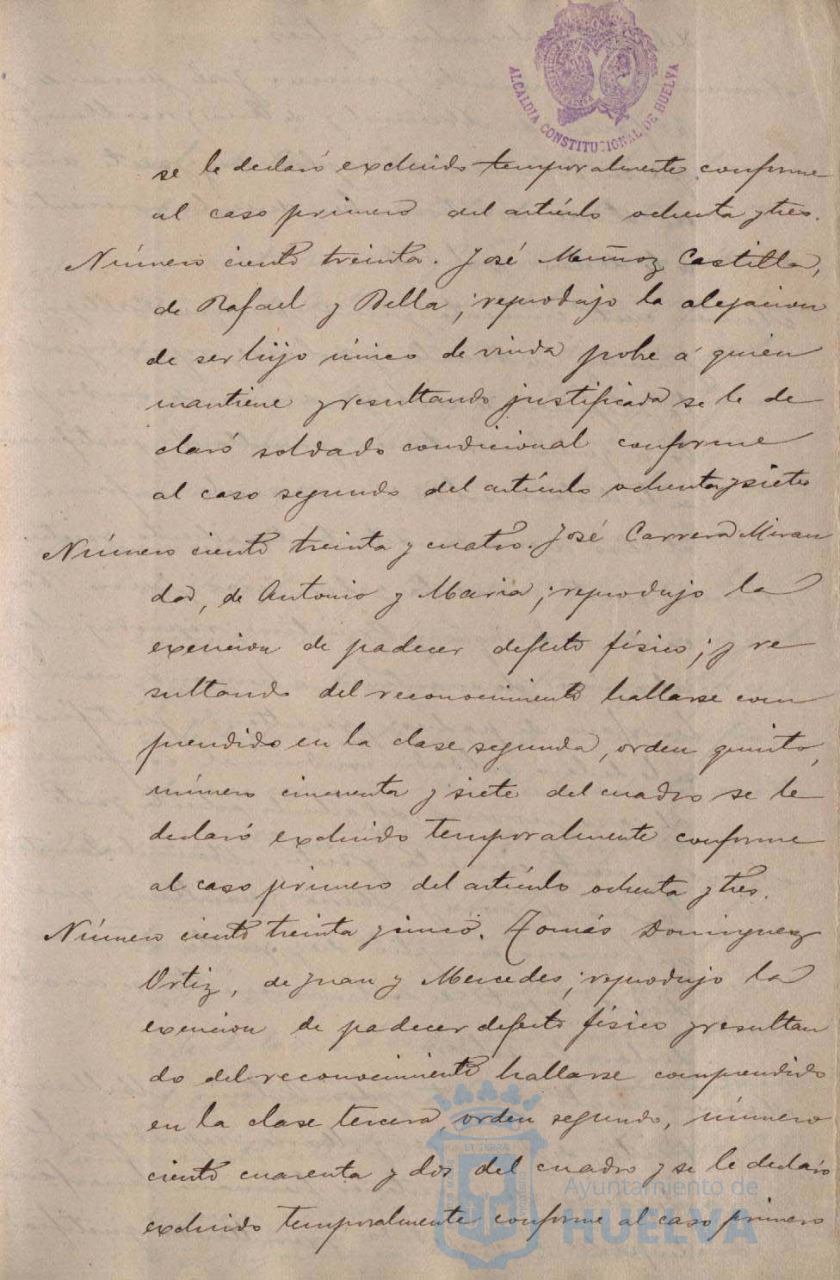 ALCALDIA CONSTITUCIONAL DE HUELVA
se le declaró excluido temporalmente conforme
al caso primero del artículo ochenta y tres.
Número ciento treinta. José Muñoz Castilla,
de Rafael y Bella; reprodujo la alegacion
de ser hijo único de viuda pobre á quien
mantiene y resultando justificada se le de
claró soldado condicional conforme
al caso segundo del artículo ochenta y siete
Número ciento treinta y cuatro. José Carrera Miran
da, de Antonio y Maria; reprodujo la
exencion de padecer defecto físico; y re
sultando del reconocimiento hallarse com
prendido en la clase segunda, orden quinto,
número cincuenta y siete del cuadro se le
declaró excluido temporalmente conforme
al caso primero del artículo ochenta y tres.
Número ciento treinta y cinco. Tomás Dominguez
Ortiz, de Juan y Mercedes; reprodujo la
exencion de padecer defecto físico y resultan
do del reconocimiento hallarse comprendido
en la clase tercera, orden segundo, número
ciento cuarenta y dos del cuadro y se le declaró
excluido temporalmente conforme al caso primero
Ayuntamiento de
HUELVA